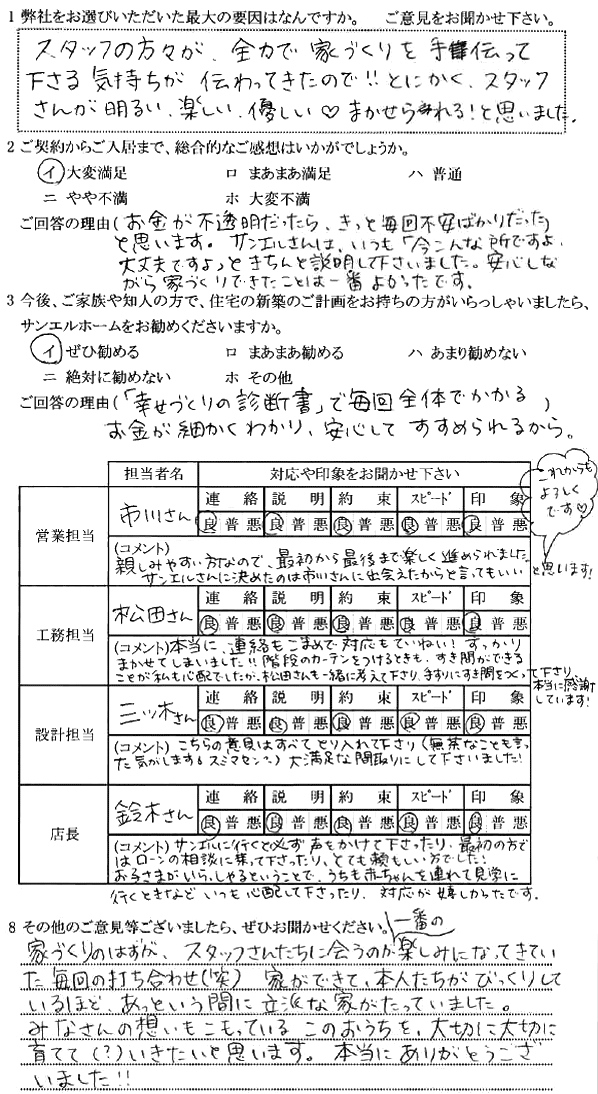 1 弊社をお選びいただいた最大の要因はなんですか。 ご意見をお聞かせ下さい。
スタッフの方々が、全力で家づくりを手伝って
下さる気持ちが伝わってきたので!!とにかく、スタッフ
さんが明るい、楽しい、優しい♡まかせられる!と思いました。
2 ご契約からご入居まで、総合的なご感想はいかがでしょうか。
イ 大変満足 ロ まあまあ満足 ハ 普通
ニ やや不満 ホ 大変不満
ご回答の理由(お金が不透明だったら、きっと毎回不安ばかりだった)
と思います。サンエルさんは、いつも「今こんな所ですよ、
大丈夫ですよ」ときちんと説明して下さいました。安心しな
がら家づくりできたことは一番よかったです。
3 今後、ご家族や知人の方で、住宅の新築のご計画をお持ちの方がいらっしゃいましたら、
サンエルホームをお勧めくださいますか。
イ ぜひ勧める ロ まあまあ勧める ハ あまり勧めない
ニ 絶対に勧めない ホ その他
ご回答の理由(「幸せづくりの診断書」で毎回全体でかかる)
お金が細かくわかり、安心してすすめられるから。
担当者名 対応や印象をお聞かせ下さい
これからも
よろしく
です♡
営業担当 市川さん 連絡 説明 約束 スピード 印象
良 普 悪 良 普 悪 良 普 悪 良 普 悪 良 普 悪
(コメント)
親しみやすい方なので、最初から最後まで楽しく進められました。
サンエルさんに決めたのは市川さんに出会えたからと言ってもいい
と思います!
工務担当 松田さん 連絡 説明 約束 スピード 印象
良 普 悪 良 普 悪 良 普 悪 良 普 悪 良 普 悪
(コメント)本当に、連絡もこまめで対応もていねい!すっかり
まかせてしまいました!!階段のカーテンをつけるときも、すき間ができる
ことが私も心配でしたが、松田さんも一緒に考えて下さり、手すりにすき間をつくって下さり、
本当に感謝
しています!
設計担当 三ッ木さん 連絡 説明 約束 スピード 印象
良 普 悪 良 普 悪 良 普 悪 良 普 悪 良 普 悪
(コメント)こちらの意見はすべてとり入れて下さり(無茶なことも言っ
た気がします スミマセン)大満足な間取りにして下さいました!
店長 鈴木さん 連絡 説明 約束 スピード 印象
良 普 悪 良 普 悪 良 普 悪 良 普 悪 良 普 悪
(コメント)サンエルに行くと必ず声をかけて下さったり、最初の方で
はローンの相談に乗って下さったり、とても頼もしい方でした!
お子さまがいらっしゃるということで、うちも赤ちゃんを連れて見学に
行くときなどいつも心配して下さったり、対応が嬉しかったです。
8 その他のご意見等ございましたら、ぜひお聞かせください。
一番の
家づくりのはずが、スタッフさんたちに会うのが楽しみになってきてい
た毎回の打ち合わせ(笑) 家ができて、本人たちがびっくりして
いるほど、あっという間に立派な家がたっていました。
みなさんの想いもこもっているこのおうちを、大切に大切に
育てて(?)いきたいと思います。本当にありがとうござ
いました!!